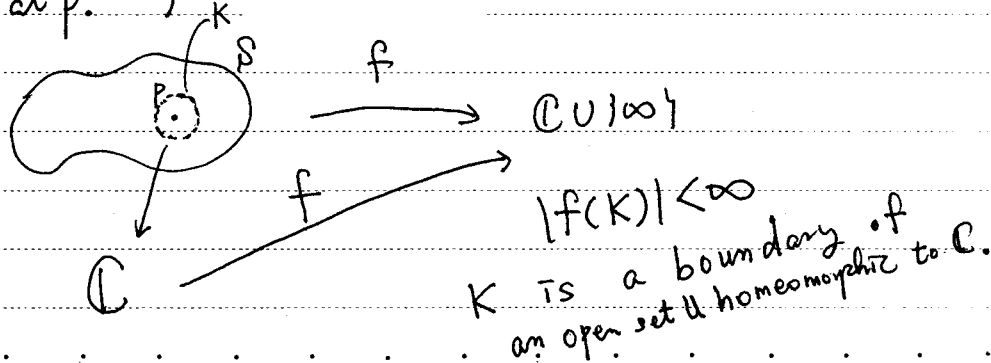 at p.
K
S
P
f
ℂ ∪ {∞}
f
|f(K)| < ∞
ℂ
K is a boundary of
an open set U homeomorphic to ℂ.